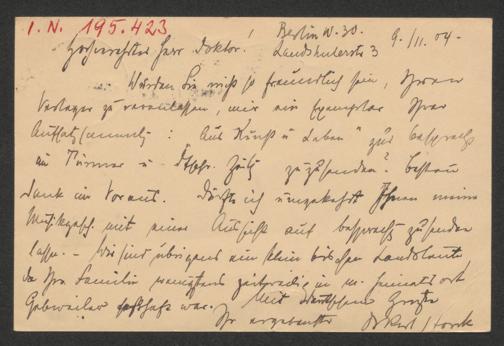 I. N. 195.423
Berlin W. 30.
Landshuterstr. 3
9./11. 04.
Hochverehrter Herr Doktor!
Würden Sie nicht so freundlich sein, Ihren
Verleger zu veranlassen, mir ein Exemplar Ihrer
Aufsatzsammlg: "Aus Kunst u Leben" zur Besprechg
im Türmer u. Dtsche. Ztg zuzusenden? Besten
Dank im Voraus. Dürfte ich umgekehrt Ihnen meine
Musikgesch. mit einer Aussicht auf Besprechg zusenden
lassen. – Wir sind übrigens ein klein bischen Landsleute,
da Ihre Familie wenigstens zeitweilig in m. Heimatsort
Gebweiler seßhaft war. Mit deutschem Gruße
Ihr ergebenster Dr Karl Storck